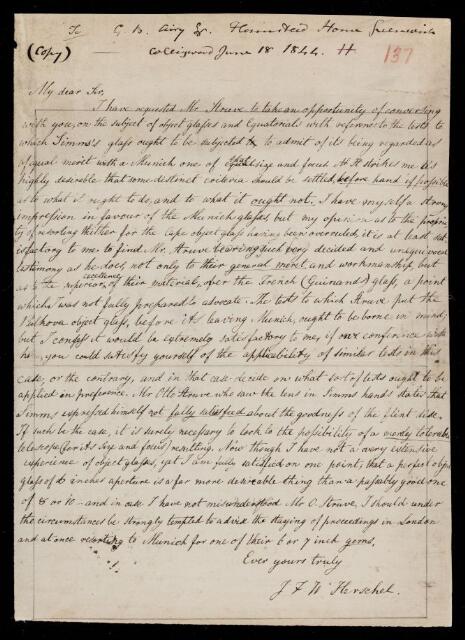 To G. B. Airy Esq. Flamstead House Greenwich
(Copy) — Collingwood June 18 1844. H 137
My dear Sir,
I have requested Mr. Struve to take an opportunity of conversing
with you, on the subject of object glasses and Equatorials with reference to the tests to
which Simms's glass ought to be subjected to admit of its being regarded as
of equal merit with a Munich one of equal size and focus. It strikes me as
highly desirable that some distinct criteria should be settled, before hand if possible
as to what it ought to do, and to what it ought not. I have myself a strong
impression in favour of the Munich glasses but my opinion as to the propriety
of resorting thither for the Cape object glass having been overruled, it is at least sat
isfactory to me to find Mr. Struve bearing such very decided and unequivocal
testimony as he does, not only to their general merit and workmanship, but
as to the superior excellency of their material, over the French (Guinands) glass, a point
which I was not fully prepared to advocate. The tests to which Struve put the
Pulkova object glass, before its leaving Munich, ought to be borne in mind;
but I confess it would be extremely satisfactory to me, if on conference with
him you could satisfy yourself of the applicability of similar tests in this
case, or the contrary, and in that case decide on what sort of tests ought to be
applied in preference. Mr Otto Struve who saw the lens in Simms hands states that
Simms expressed himself not fully satisfied about the goodness of the flint disc.
If such be the case, it is surely necessary to look to the possibility of a merely tolerable
telescope (for its size and focus) resulting. Now though I have not a very extensive
experience of object glasses, yet I am fully satisfied on one point, that a perfect object
glass of 6 inches aperture is a far more desirable thing than a passably good one
of 8 or 10 — and in case I have not misunderstood Mr O. Struve, I should under
the circumstances be strongly tempted to advise the staying of proceedings in London
and at once resorting to Munich for one of their 6 or 7 inch gems.
Ever yours truly
J F W Herschel.